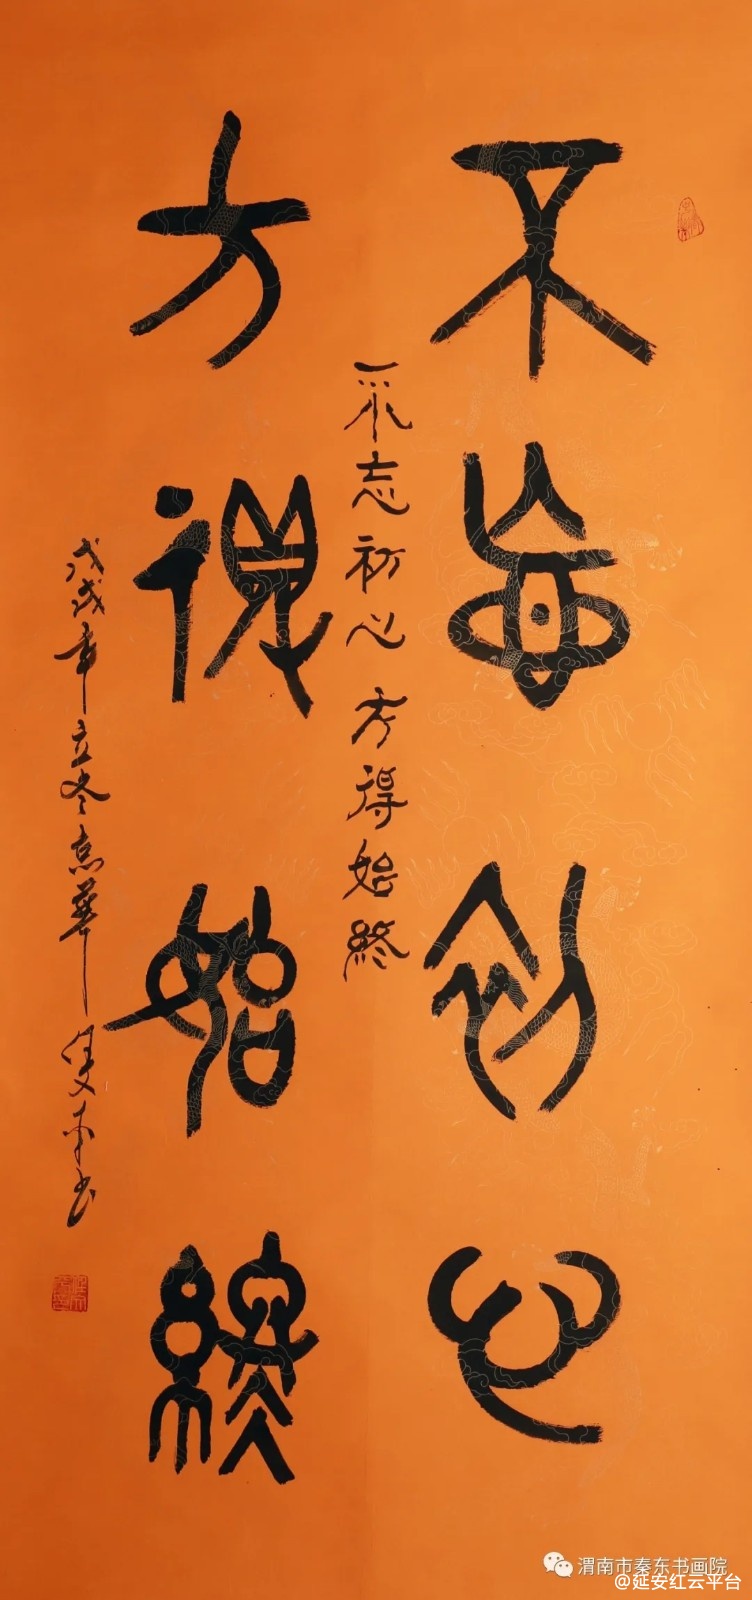 不忘初心
不忘初心方得始終
方得始終
戊戌年立冬京華东书
渭南市秦东书画院
@延安红云平台